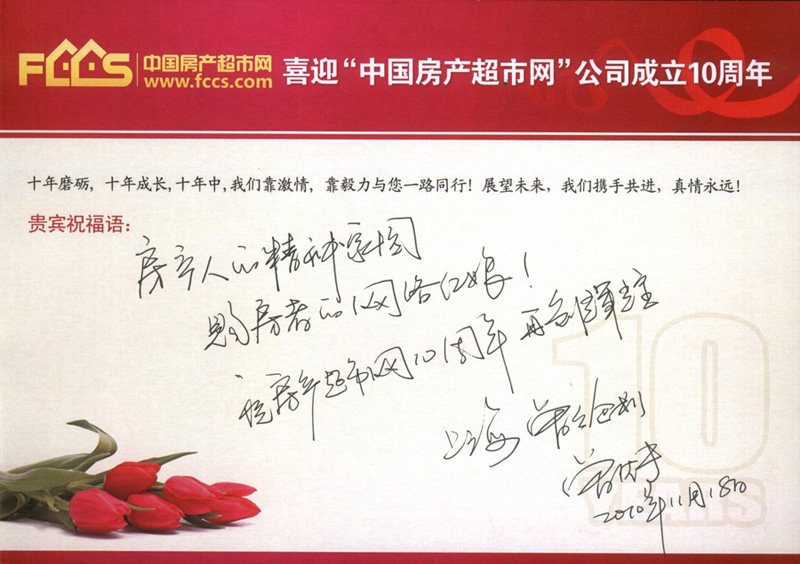 FCCS 中国房产超市网
www.fccs.com
喜迎“中国房产超市网”公司成立10周年
十年磨砺，十年成长，十年中，我们靠激情，靠毅力与您一路同行！展望未来，我们携手共进，真情永远！
贵宾祝福语：
房产人的精神家园
购房者的网络红娘！
祝房产超市网10周年再创辉煌
上海
2010年11月18日
10
YEARS